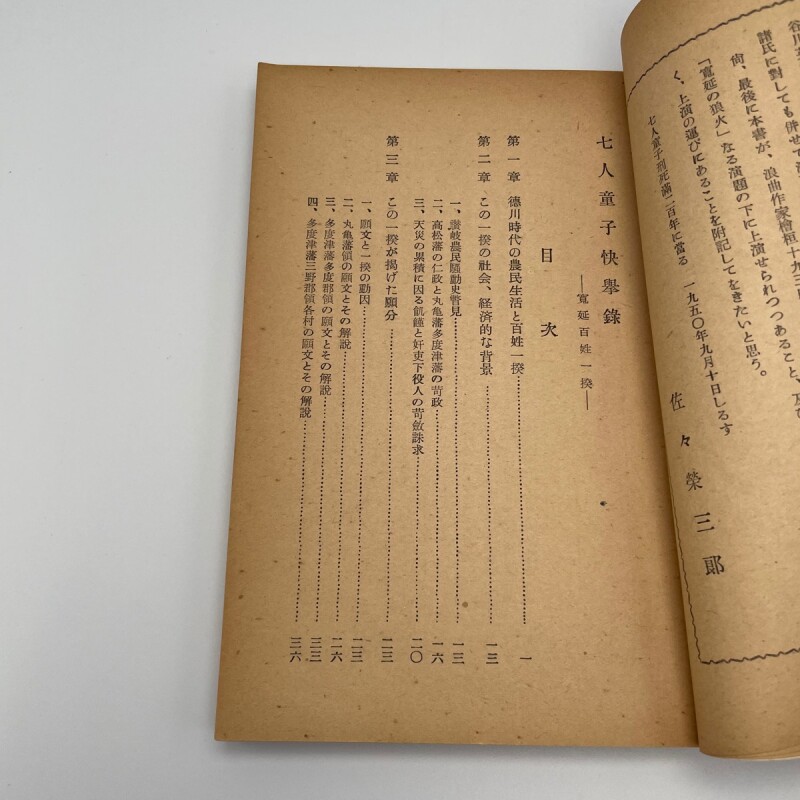 諸氏に對しても併せて
尙、最後に本書が、浪曲作家檜垣十九三
「寬延の狼火」なる演題の下に上演せられつつあること、
く、上演の運びにあることを附記してをきたいと思う。
七人童子刑死滿二百年に當る　一九五〇年九月十日しるす
佐々榮三郎
七人童子快擧錄
――寬延百姓一揆――
目次
第一章　德川時代の農民生活と百姓一揆……一
第二章　この一揆の社会、経済的な背景……一三
一、讃岐農民騒動史瞥見……一三
二、高松藩の仁政と丸亀藩多度津藩の苛政……一六
三、天災の累積に因る飢饉と奸吏下役人の苛斂誅求……二〇
第三章　この一揆が揭げた願分……二三
一、願文と一揆の動因……二三
二、丸亀藩領の願文とその解說……二六
三、多度津藩多度郡領の願文とその解說……三三
四、多度津藩三野郡領各村の願文とその解說……三六